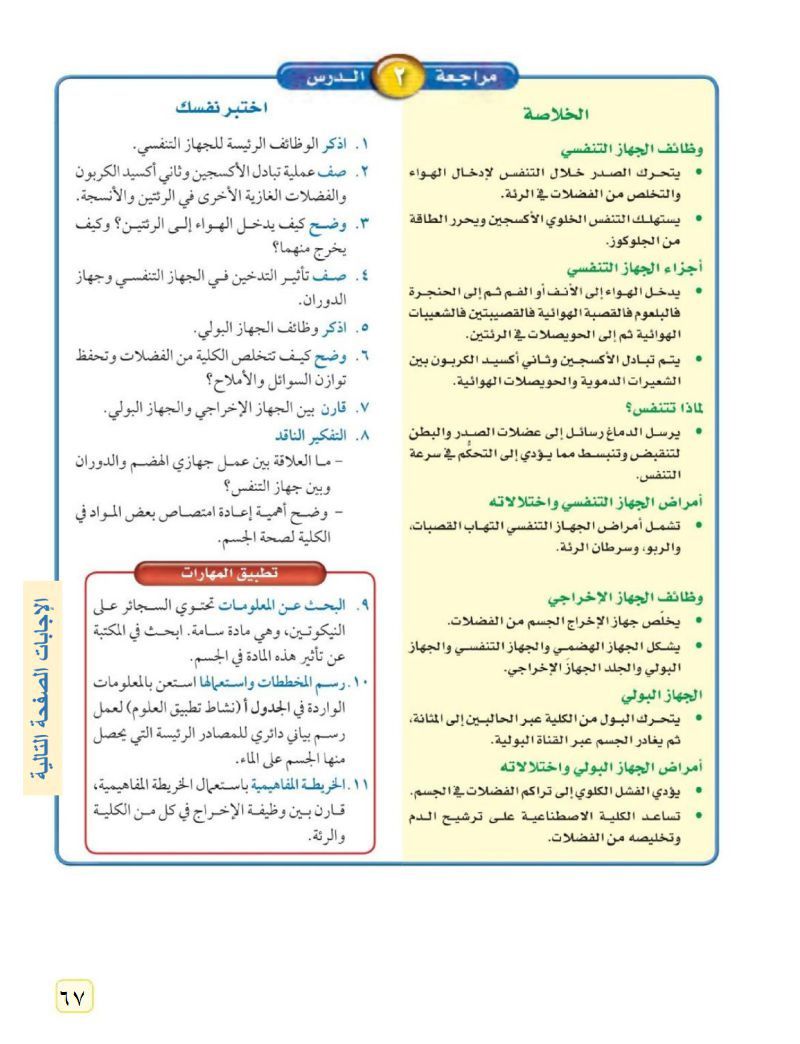 مراجعة ٢ الدرس
الخلاصة
وظائف الجهاز التنفسي
• يتحرك الصدر خلال التنفس لإدخال الهواء
والتخلص من الفضلات في الرئة.
• يستهلك التنفس الخلوي الأكسجين ويحرر الطاقة
من الجلوكوز.
أجزاء الجهاز التنفسي
• يدخل الهواء إلى الأنف أو الفم ثم إلى الحنجرة
فالبلعوم فالقصبة الهوائية فالقصيبتين فالشعيبات
الهوائية ثم إلى الحويصلات في الرئتين.
• يتم تبادل الأكسجين وثاني أكسيد الكربون بين
الشعيرات الدموية والحويصلات الهوائية.
لماذا تتنفس؟
• يرسل الدماغ رسائل إلى عضلات الصدر والبطن
لتنقبض وتنبسط مما يؤدي إلى التحكُّم في سرعة
التنفس.
أمراض الجهاز التنفسي واختلالاته
• تشمل أمراض الجهاز التنفسي التهاب القصبات،
والربو، وسرطان الرئة.
وظائف الجهاز الإخراجي
• يخلّص جهاز الإخراج الجسم من الفضلات.
• يشكل الجهاز الهضمي والجهاز التنفسي والجهاز
البولي والجلد الجهازَ الإخراجي.
الجهاز البولي
• يتحرك البول من الكلية عبر الحالبين إلى المثانة،
ثم يغادر الجسم عبر القناة البولية.
أمراض الجهاز البولي واختلالاته
• يؤدي الفشل الكلوي إلى تراكم الفضلات في الجسم.
• تساعد الكلية الاصطناعية على ترشيح الدم
وتخليصه من الفضلات.
اختبر نفسك
١. اذكر الوظائف الرئيسة للجهاز التنفسي.
٢. صف عملية تبادل الأكسجين وثاني أكسيد الكربون
والفضلات الغازية الأخرى في الرئتين والأنسجة.
٣. وضح كيف يدخل الهواء إلى الرئتين؟ وكيف
يخرج منهما؟
٤. صف تأثير التدخين في الجهاز التنفسي وجهاز
الدوران.
٥. اذكر وظائف الجهاز البولي.
٦. وضح كيف تتخلص الكلية من الفضلات وتحفظ
توازن السوائل والأملاح؟
٧. قارن بين الجهاز الإخراجي والجهاز البولي.
٨. التفكير الناقد
– ما العلاقة بين عمل جهازي الهضم والدوران
وبين جهاز التنفس؟
– وضح أهمية إعادة امتصاص بعض المواد في
الكلية لصحة الجسم.
تطبيق المهارات
٩. البحث عن المعلومات تحتوي السجائر على
النيكوتين، وهي مادة سامة. ابحث في المكتبة
عن تأثير هذه المادة في الجسم.
١٠. رسم المخططات واستعمالها استعن بالمعلومات
الواردة في الجدول أ (نشاط تطبيق العلوم) لعمل
رسم بياني دائري للمصادر الرئيسة التي يحصل
منها الجسم على الماء.
١١. الخريطة المفاهيمية باستعمال الخريطة المفاهيمية،
قارن بين وظيفة الإخراج في كل من الكلية
والرئة.
الإجابات الصفحة التالية
٦٧